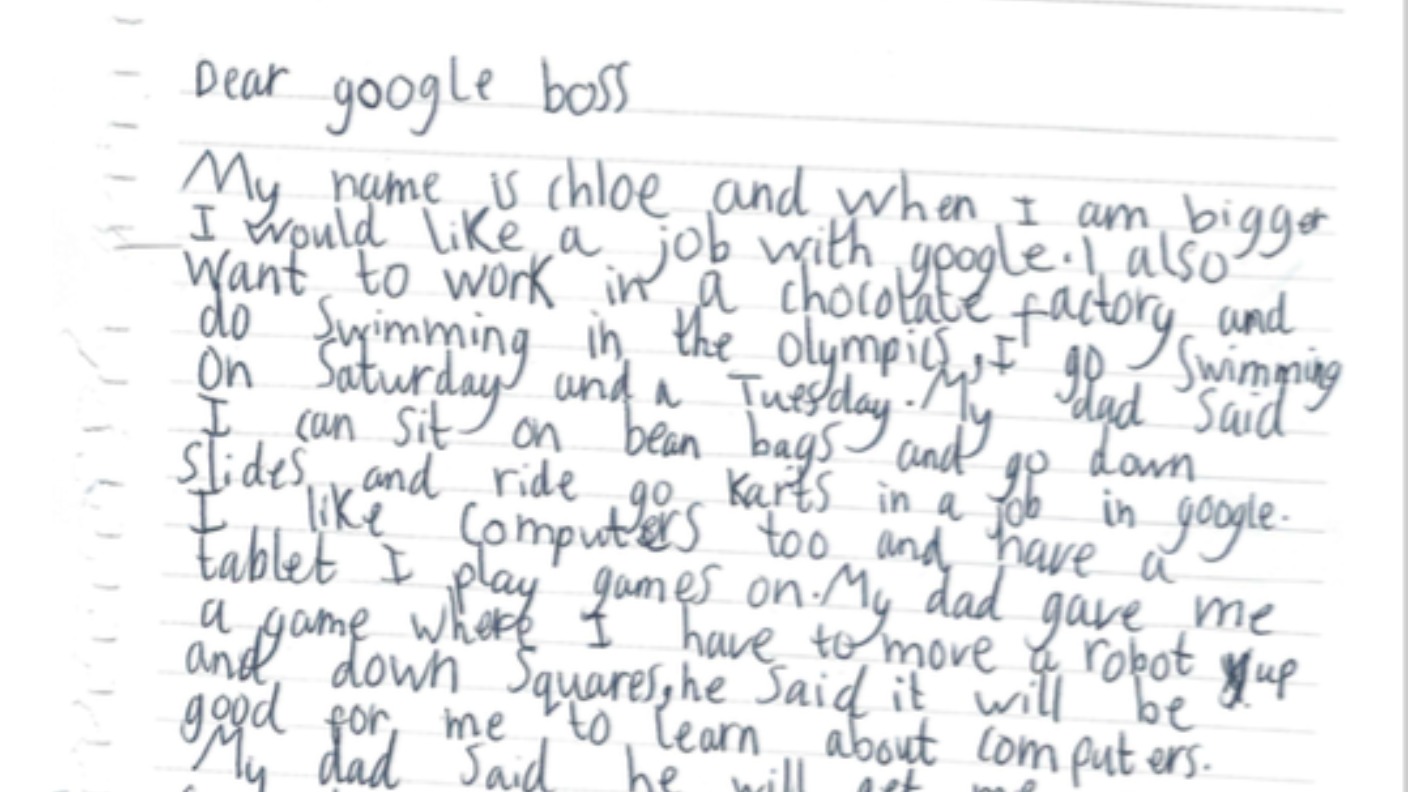 Dear google boss
My name is chloe and when I am bigger
I would like a job with google. I also
want to work in a chocolate factory and
do swimming in the olympics, I go swimming
on Saturday and a Tuesday. My dad said
I can sit on bean bags and go down
slides and ride go karts in a job in google.
I like computers too and have a
tablet I play games on. My dad gave me
a game where I have to move a robot up
and down squares, he said it will be
good for me to learn about computers.
My dad said he will get me